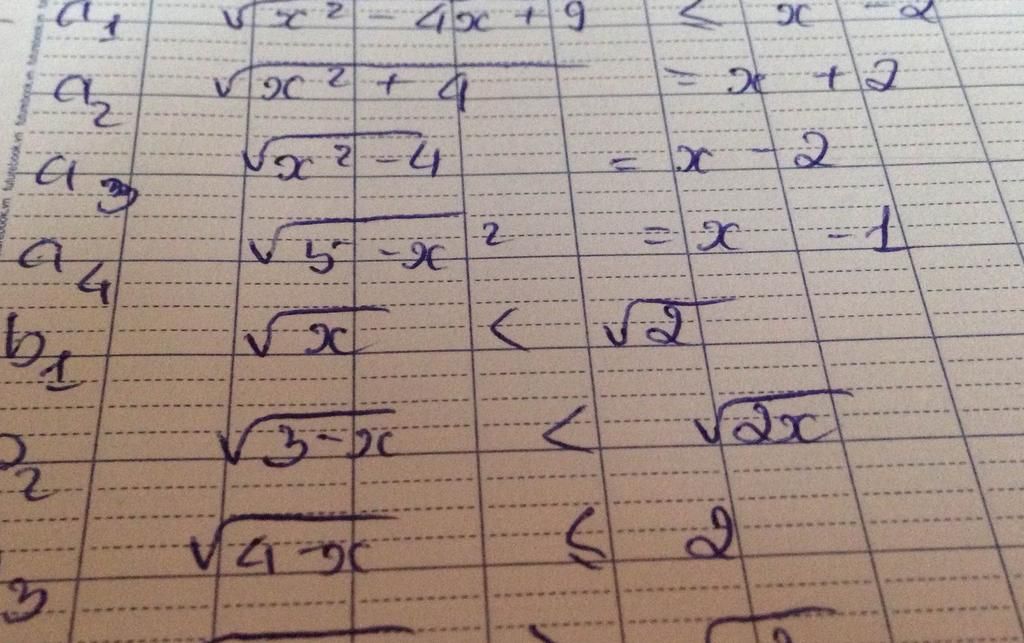 a₁ √(x² - 4x + 9) ≤ x - 2
a₂ √(x² + 4) = x + 2
a₃ √(x² - 4) = x - 2
a₄ √(5 - x²) = x - 1
b₁ √x < √2
2 √(3 - x) < √(2x)
3 √(4 - x) ≤ 2